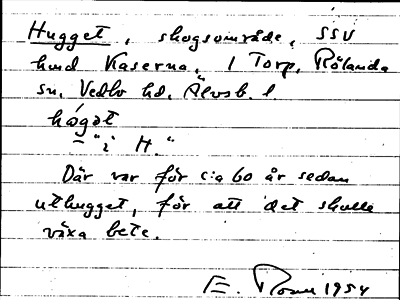 Hugget, skogsområde, SSV
hmd Kaserna, 1 Torp, Rölanda
sn, Vedbo hd, Älvsb. l
hó̜gət
– "i H."
Där var för c:a 60 år sedan
uthugget, för att det skulle
växa bete.
E. 1954